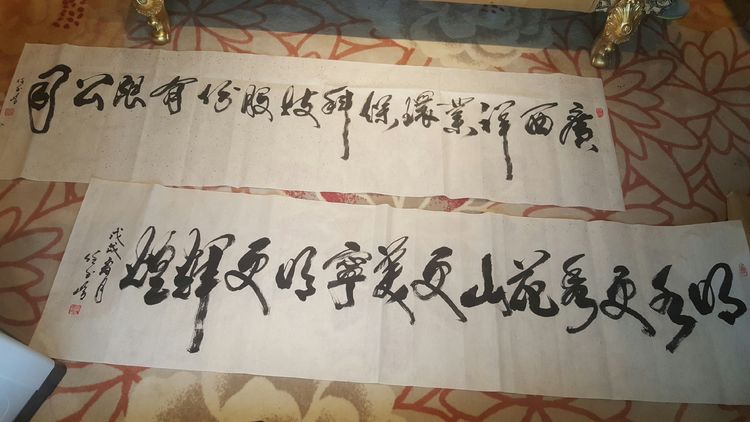 廣西祥業環保科技股份有限公司
明水更秀花山更美寧明更輝煌
戊戌